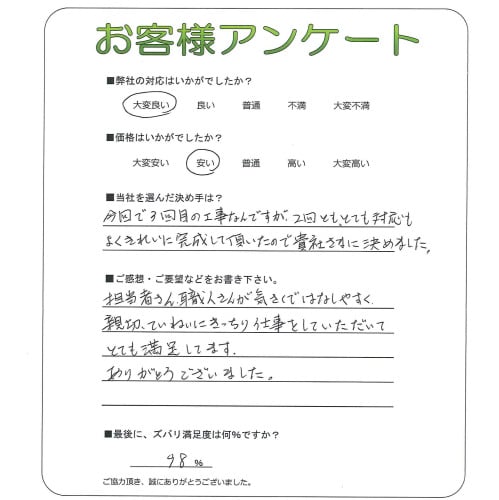 お客様アンケート
■弊社の対応はいかがでしたか？
大変良い 良い 普通 不満 大変不満
■価格はいかがでしたか？
大変安い 安い 普通 高い 大変高い
■当社を選んだ決め手は？
今回で3回目の工事なんですが、2回とも、とても対応も
よくきれいに完成して頂いたので貴社さまに決めました。
■ご感想・ご要望などをお書き下さい。
担当者さん、職人さんが気さくではなしやすく、
親切、ていねいにきっちり仕事をしていただいて
とても満足してます。
ありがとうございました。
■最後に、ズバリ満足度は何％ですか？
98 ％
ご協力頂き、誠にありがとうございました。